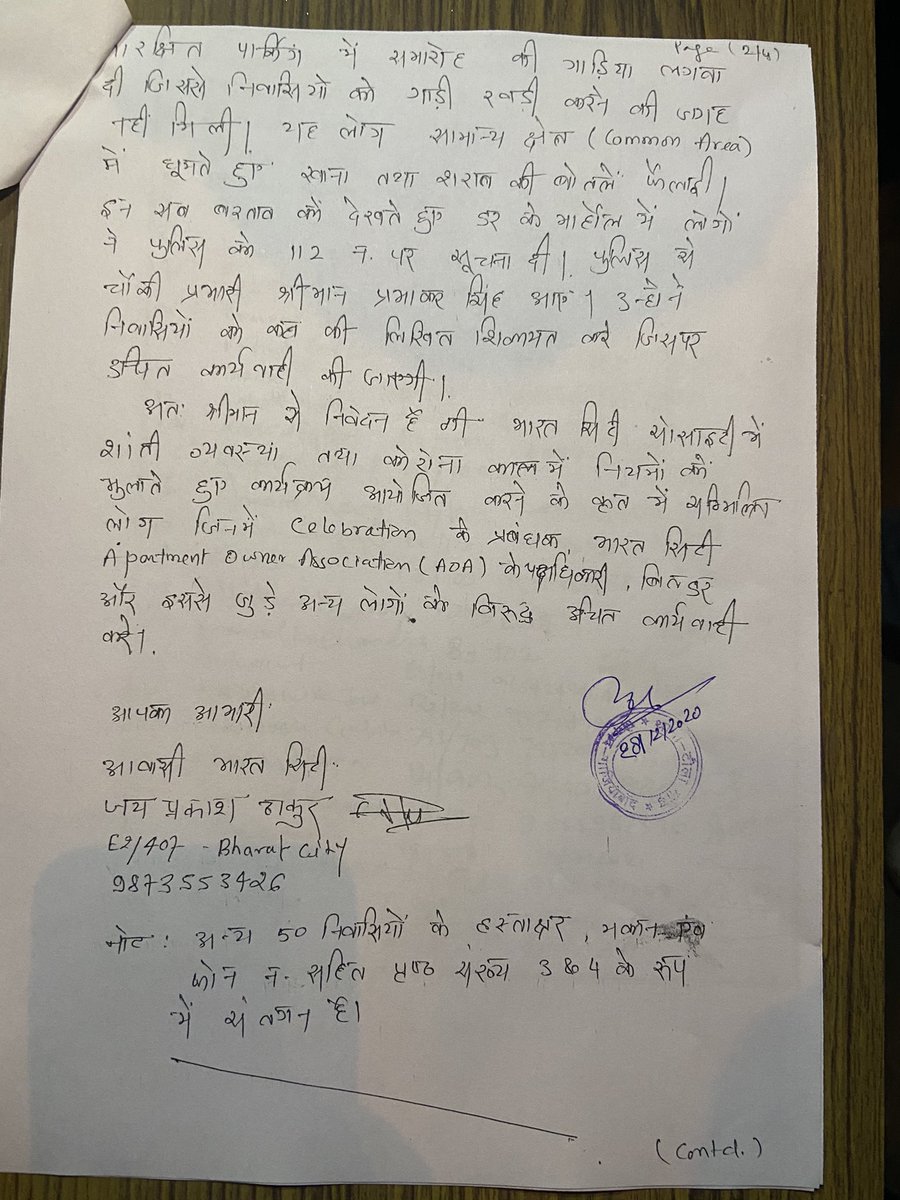 Page (2/4)
आरक्षित पार्किंग में समारोह की गाड़िया लगवा
दी जिससे निवासियों को गाड़ी खड़ी करने की जगह
नहीं मिली। यह लोग सामान्य क्षेत्र (Common Area)
में घूमते हुए खाना तथा शराब की बोतलें फैलादी।
इन सब बरताव कों देखते हुए डर के माहौल में लोगों
ने पुलिस को 112 न. पर सूचना दी। पुलिस से
चौंकी प्रभारी श्रीमान प्रभाकर सिंह आए। उन्होने
निवासियों को कहा की लिखित शिकायत करे जिसपर
उचित कार्यवाही की जाएगी।
अतः श्रीमान से निवेदन है की भारत सिटी सोसाइटी में
शांती व्यवस्था तथा कोरोना काल में नियमों कों
भुलाते हुए कार्यक्रम आयोजित करने के कृत में सम्मिलित
लोग जिनमें Celebration के प्रबंधक, भारत सिटी
Apartment Owner Association (AOA) के पदाधिकारी, बिलडर
और इससे जुड़े अन्य लोगों के विरुद्ध उचित कार्यवाही
करे।
आपका आभारी
आवासी भारत सिटी
जय प्रकाश ठाकुर
E2/407 - Bharat City
9873553426
28/12/2020
नोट: अन्य 50 निवासियों के हस्ताक्षर, मकान एंव
फोन न. सहित पृष्ठ संख्य 3 & 4 के रूप
में संलगन है।
(Contd.)